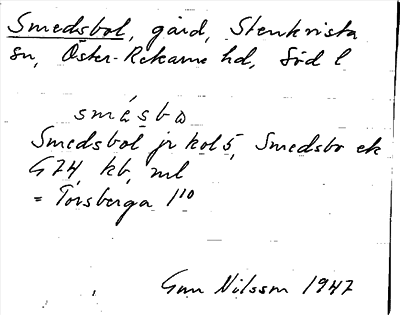 Smedsbol, gård, Stenkvista
sn, Öster-Rekarne hd, Söd l
smésbω
Smedsbol jr kol 5, Smedsbo ek
G74, kb, ml
= Torsberga 1¹⁰
Gun Nilsson 1947